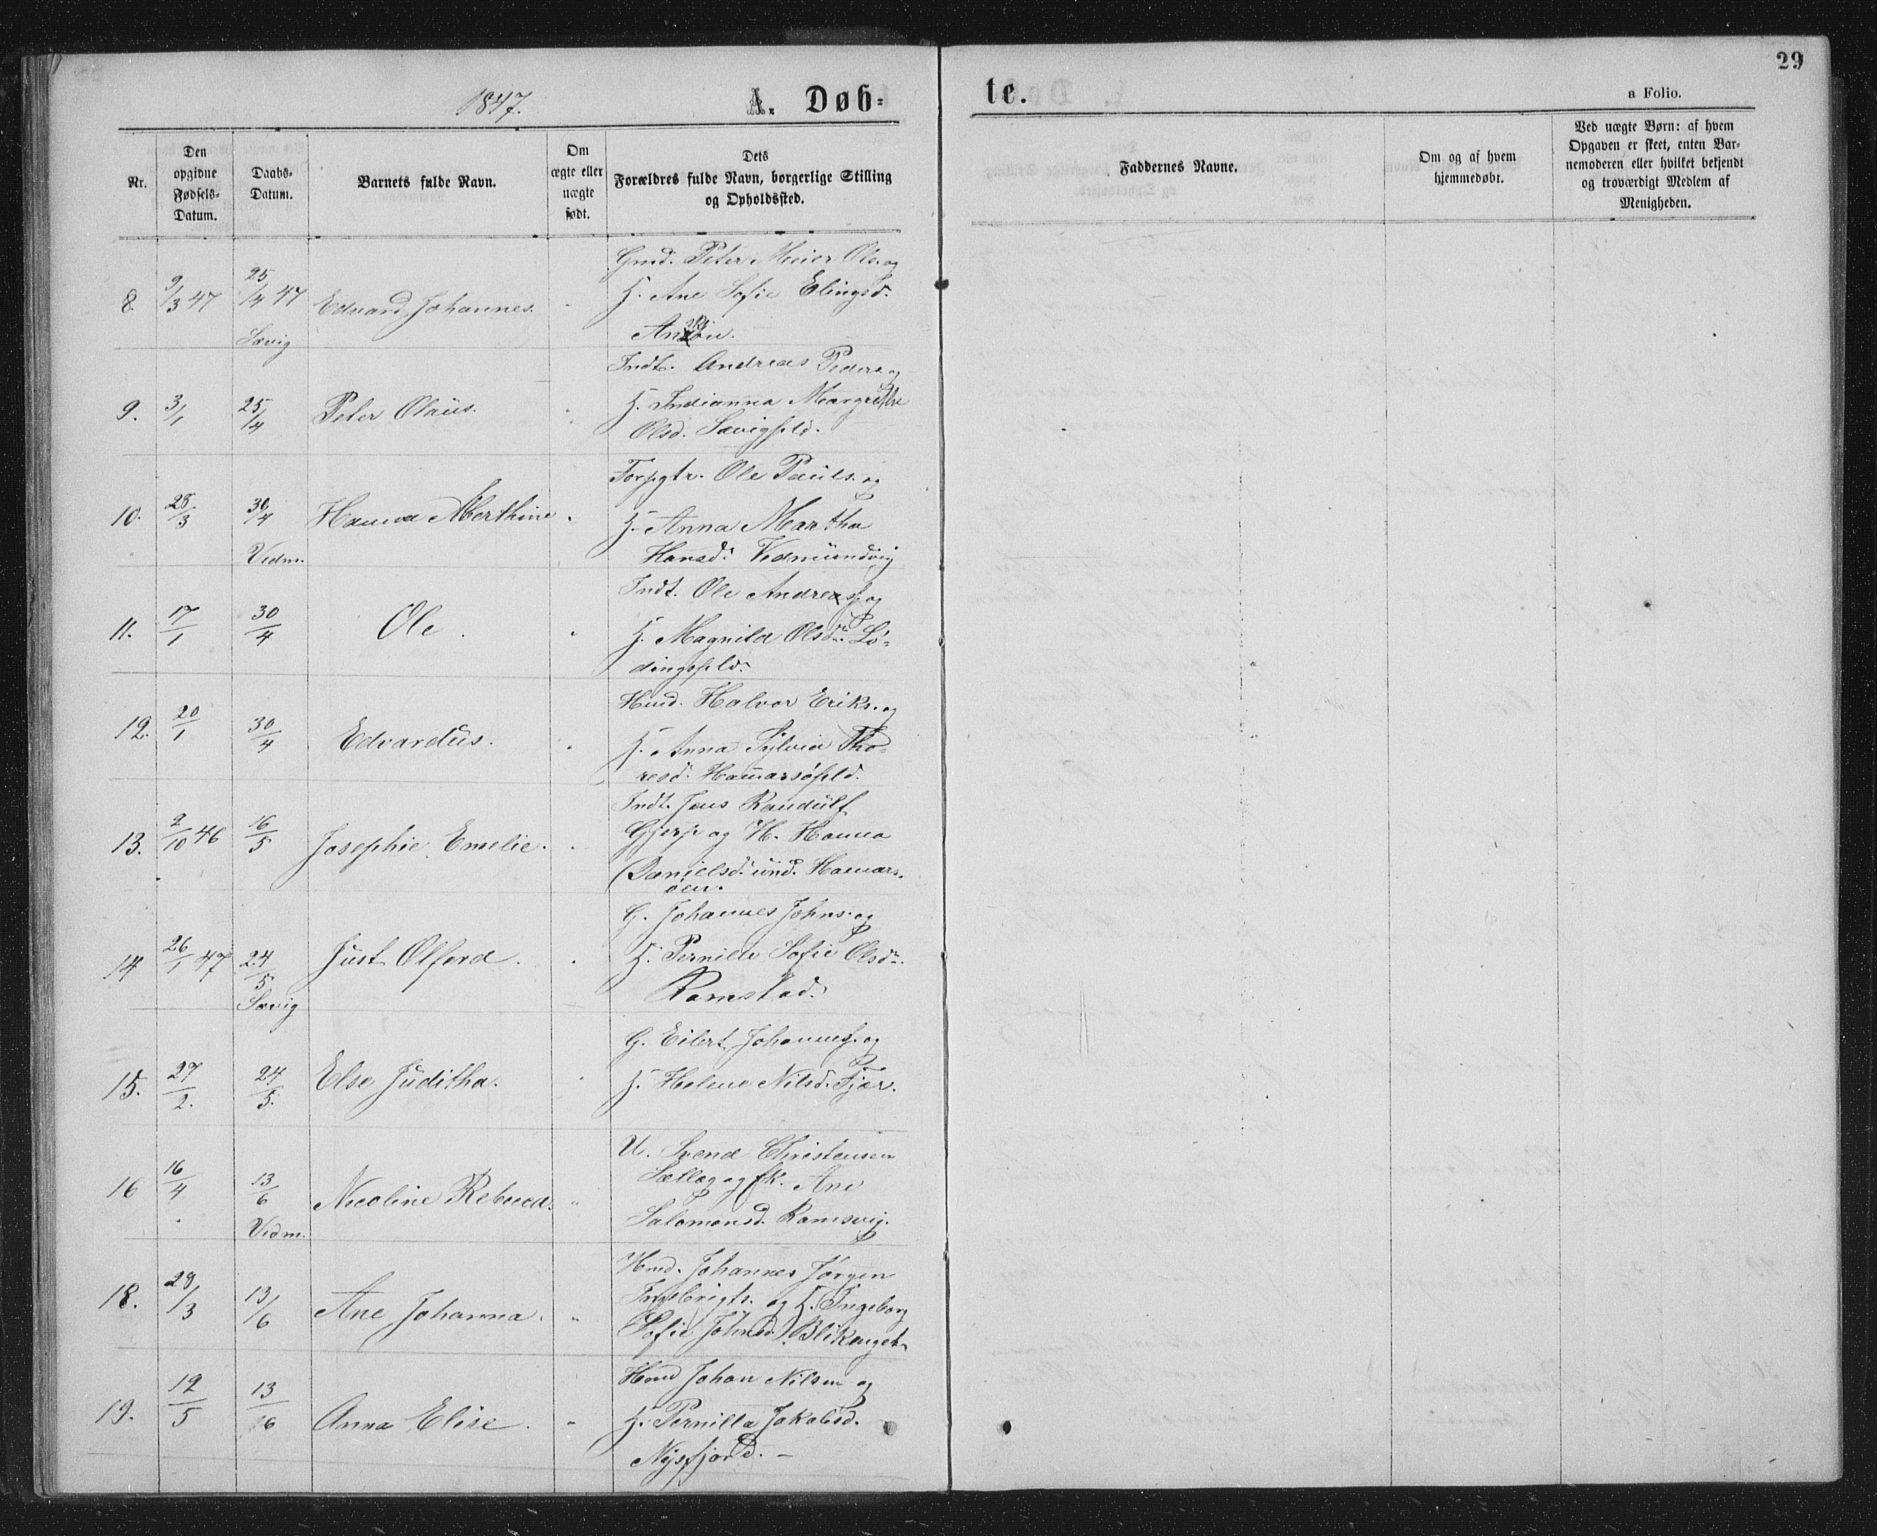 29
1847.
A. Døb-
te.
a Folio.
Nr.
Den
opgivne
Fødsels-
Datum.
Daabs-
Datum.
Barnets fulde Navn.
Om
ægte eller
uægte
født.
Dets
Forældres fulde Navn, borgerlige Stilling
og Opholdssted.
Faddernes Navne.
Om og af hvem
hjemmedøbt.
Ved uægte Børn: af hvem
Opgaven er skeet, enten Bar-
nemoderen eller hvilket bekjendt
og troværdigt Medlem af
Menigheden.
8. 9/3 47 25/4 47 Edvard Johannes.
Sævig
Gmd. Peter Meier Ols. og
H. Ane Sofie Elingsd.
9. 3/1 25/4 Peter Olaus.
Indt. Andreas Peders. og
H. Indianna Margrethe
Olsd. Sævigfjld.
10. 28/3 30/4 Hanna Alberthine
Vidm.
Forpgtr. Ole Pauls. og
H. Anna Martha
Hansd. Vidmundvig
11. 17/1 30/4 Ole.
Indt. Ole Andreas. og
H. Magnild Olsdr. Lø-
dingsfjld.
12. 20/1 30/4 Edvardus.
Hmd. Halvor Eriks. og
H. Anna Sylvia Tho-
resd. Hamarsøfjld.
13. 2/10 46 16/5 Josephie Emelie.
Indt. Jens Randulf
Gjerp og H. Hanna
Danielsd. und. Hamars-
øen.
14 26/1 47 24/5 Just Olferd.
Sævig
G. Johannes Johns. og
H. Pernille Sofie Olsdr.
Ramstad.
15. 27/2. 24/5. Else Juditha.
G. Eilert Johannes. og
H. Helene Nilsd. Fjær.
16 16/4 13/6 Nicoline Rebecca. "
Vidm.
U. Svend Christensen
Sællag og fk. Ane
Salomonsd. Ramsvig.
18. 29/3 13/6 Ane Johanna. "
Hmd. Johannes Jørgen
Ingebrigts. og H. Ingeborg
Sofie Johnsd. Blikenget.
19. 12/5 13/6 Anna Elise. "
Hmd Johan Nilsen og
H. Pernilla Jakobsd.
Nysfjord. -